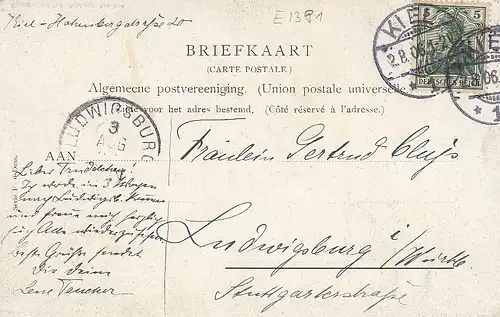 Kiel - Hohenbergstraße 20
E1391
BRIEFKAART
(CARTE POSTALE.)
Algemeene postvereeniging. (Union postale universelle
Zijde voor het adres bestemd. (Côté réservé à l'adresse.)
KIEL
2.8.06.
5
DEUTSCHES REICH
LUDWIGSBURG
3
AUG
AAN
Fräulein Gertrud Cluss
Ludwigsburg i/Württb
Stuttgarterstraße
Liebe Trudelchen!
in 3 Wochen
nach Ludwigsb. kommen
und freue mich herzlich
Alle wiederzusehen
beste Grüße sendet
Dir deine
Lene